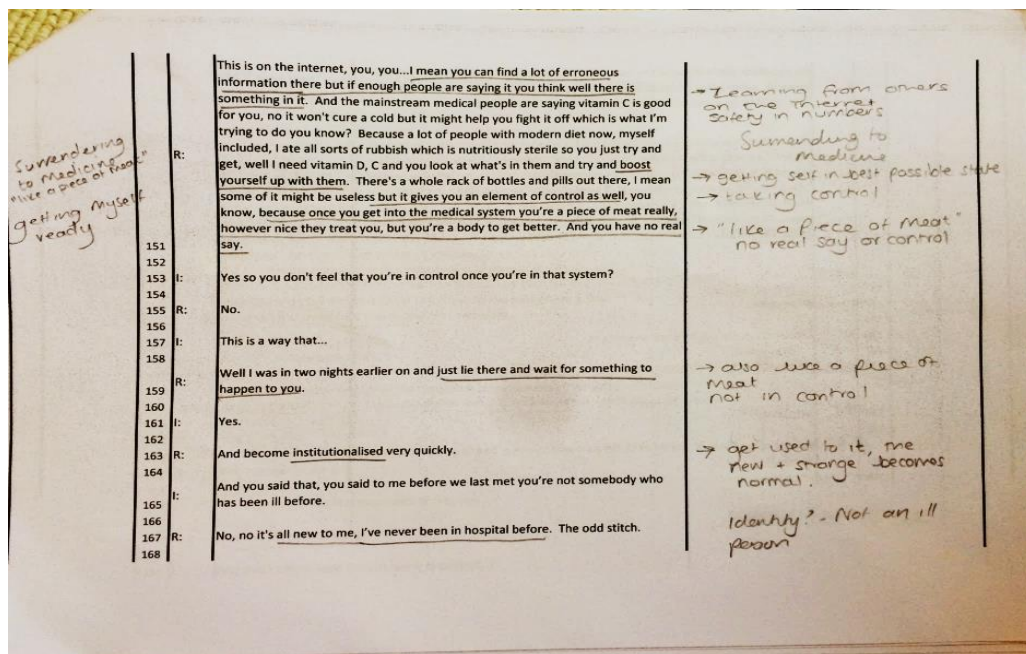 This is on the internet, you, you...I mean you can find a lot of erroneous
information there but if enough people are saying it you think well there is
something in it. And the mainstream medical people are saying vitamin C is good
for you, no it won't cure a cold but it might help you fight it off which is what I'm
trying to do you know? Because a lot of people with modern diet now, myself
included, I ate all sorts of rubbish which is nutritiously sterile so you just try and
R: get, well I need vitamin D, C and you look at what's in them and try and boost
yourself up with them. There's a whole rack of bottles and pills out there, I mean
some of it might be useless but it gives you an element of control as well, you
know, because once you get into the medical system you're a piece of meat really,
however nice they treat you, but you're a body to get better. And you have no real
151 say.
152
153 I: Yes so you don't feel that you're in control once you're in that system?
154
155 R: No.
156
157 I: This is a way that...
158
Well I was in two nights earlier on and just lie there and wait for something to
159 R: happen to you.
160
161 I: Yes.
162
163 R: And become institutionalised very quickly.
164
And you said that, you said to me before we last met you're not somebody who
165 I: has been ill before.
166
167 R: No, no it's all new to me, I've never been in hospital before. The odd stitch.
168
Surrendering
to medicine
"like a piece of meat"
getting myself
ready
→ Learning from others
on the Internet
safety in numbers
Surrending to
medicine
→ getting self in best possible state
→ taking control
→ "like a piece of meat"
no real say or control
→ also like a piece of
meat
not in control
→ get used to it, the
new + strange becomes
normal.
Identity? - Not an ill
person